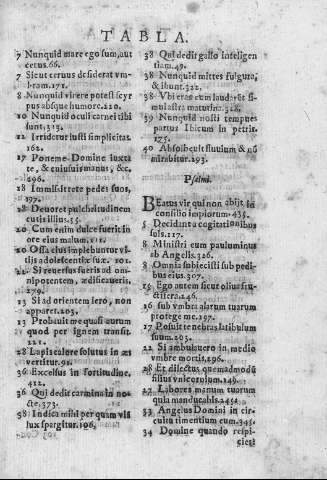 TABLA.
7 Nunquid mare ego sum, aut
cetus.66.
7 Sicut ceruus desiderat vm-
bram.171.
8 Nunquid virere potest scyr
pus absque humore.220.
10 Nunquid oculi carnei tibi
sunt.323.
12 irridetur iusti simplicitas.
162.
17 Poneme Domine iuxta
te, & cuiusuis manus, &c.
496.
18 Immisit rete pedes suos,
197.
18 Deuoret pulchritudinem
cutis illius.15.
20 Cum enim dulce fuerit in
ore eius malum.111.
20 Ossa eius implebuntur vi-
tijs adolescentiæ suæ. 101.
22 Si reuersus fueris ad om-
nipotentem, ædificaueris.
279.
23 Si ad orientem iero, non
apparet.203.
23 Probauit me quasi aurum
quod per ignem transit.
221.
28 Lapis calore solutus in æs
vertitur.91.
36 Excelsus in fortitudine,
412.
36 Qui dedit carmina in no-
cte.373.
38 Indica mihi per quam vis
lux spargitur.196.
38 Qui dedit gallo intelligen
tiam.49.
38 Nunquid mittes fulgura,
& ibunt.322.
38 Vbi eras cum laudarent si-
mul astra matutina.328.
39 Nunquid nosti tempus
partus Ibicum in petris.
175.
40 Absorbebit fluuium & nō
mirabitur.293.
Psalmi.
BEatus vir qui non abijt in
consilio impiorum.435.
5 Decidant a cogitationibus
suis.117.
8 Ministi eum pauluminus
ab Angelis.326.
8 Omnia subiecisti sub pedi-
bus eius.307.
15 Ego autem sicut oliua fru-
ctifera.246.
16 sub vmbra alarum tuarum
protege me.197.
17 Posuit tenebras latibulum
suum.203.
22 Si ambulauero in medio
vmbre mortis.196.
28 Et dilectus quemadmodū
filius vnicornium.149.
27 Labores manuum tuarum
quia manducabis.245.
33 Angelus Domini in cir-
cuitu timentium eum.345.
34 Domine quando respi-
cies?